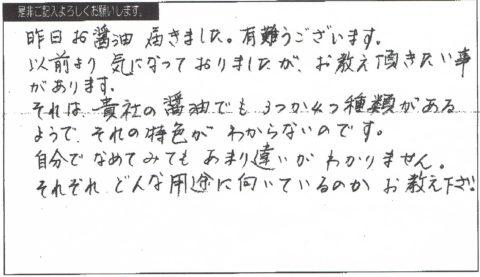 是非ご記入よろしくお願いします。
昨日お醤油届きました。有難うございます。
以前より気になっておりましたが、お教え頂きたい事
があります。
それは貴社の醤油でも3つか4つ種類がある
ようで、それの特色がわからないのです。
自分でなめてみてもあまり違いがわかりません。
それぞれどんな用途に向いているのかお教え下さい